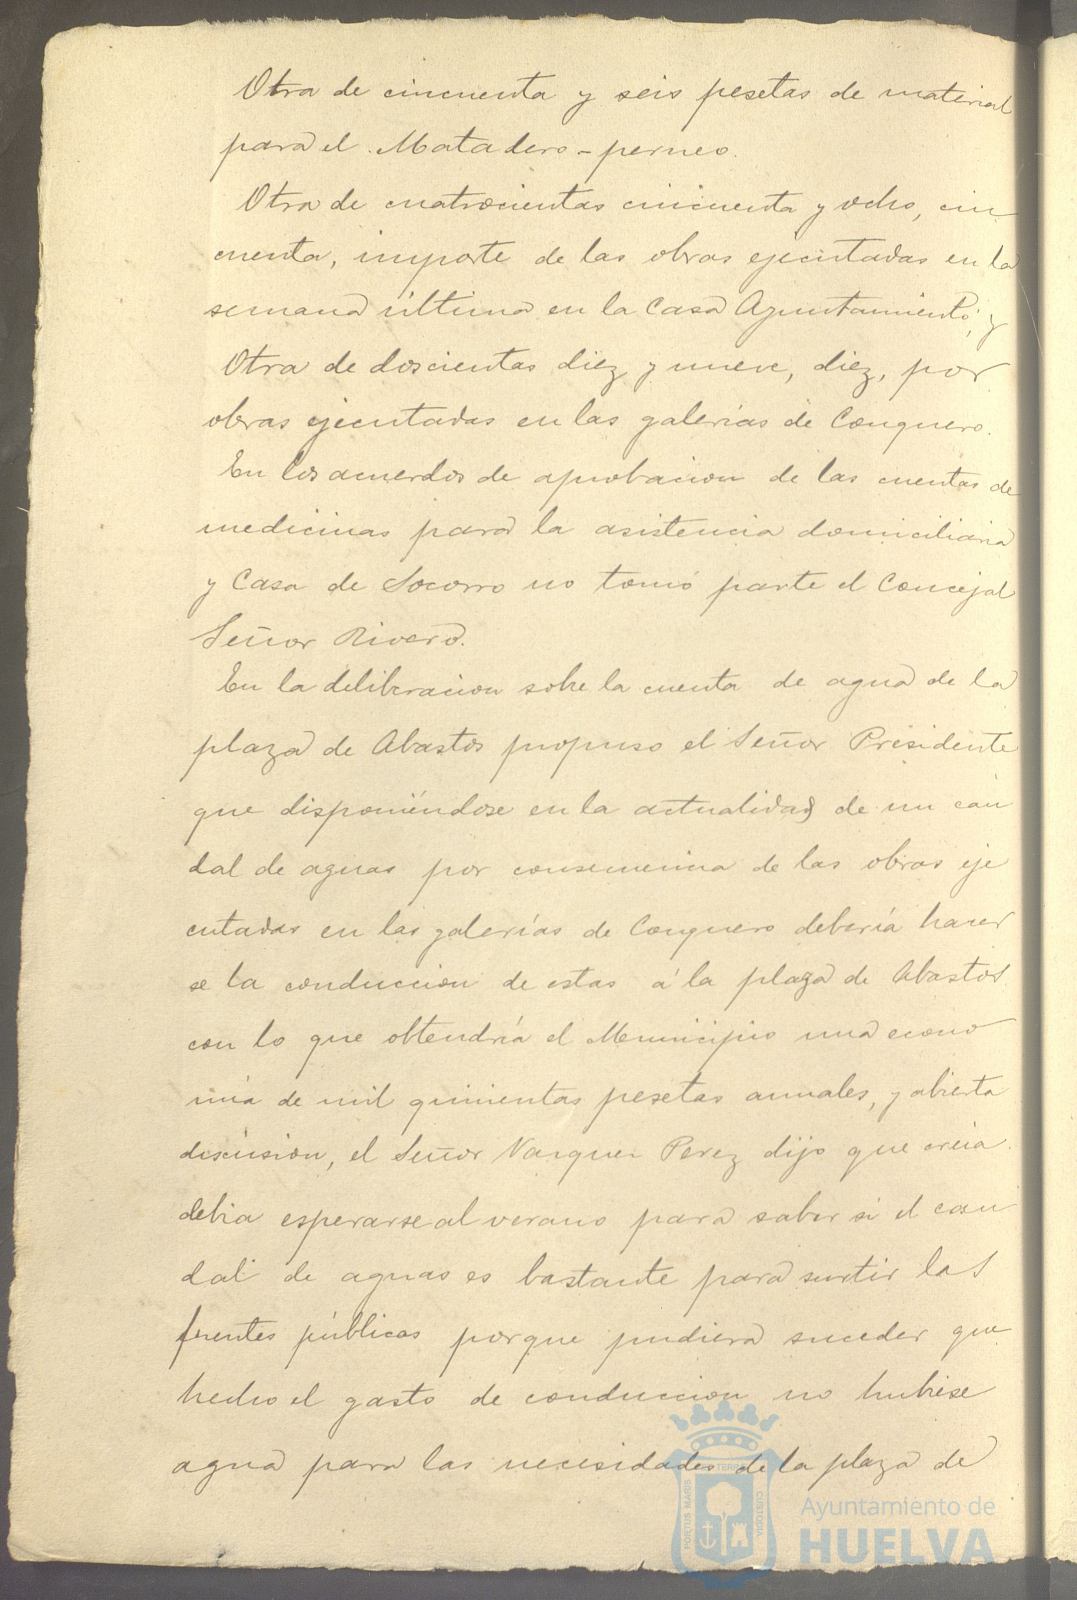 Otra de cincuenta y seis pesetas de material
para el Matadero-perneo.
Otra de cuatrocientas cincuenta y ocho, cin
cuenta, importe de las obras ejecutadas en la
semana última en la Casa Ayuntamiento, y
Otra de doscientas diez y nueve, diez, por
obras ejecutadas en las galerías de Conquero.
En los acuerdos de aprobacion de las cuentas de
medicinas para la asistencia domiciliaria
y Casa de Socorro no tomó parte el Concejal
Señor Rivero.
En la deliberacion sobre la cuenta de agua de la
plaza de Abastos propuso el Señor Presidente
que disponiéndose en la actualidad de un cau
dal de aguas por consecuencia de las obras eje
cutadas en las galerías de Conquero debería hacer
se la conduccion de estas á la plaza de Abastos
con lo que obtendría el Municipio una econo
mía de mil quinientas pesetas anuales, y abierta
discusion, el Señor Vazquez Perez dijo que creia
debia esperarse al verano para saber si el cau
dal de aguas es bastante para surtir las
fuentes públicas porque pudiera suceder que
hecho el gasto de conduccion no hubiese
agua para las necesidades de la plaza de
PORTUS MARIS
TERRAE
CUSTODIA
Ayuntamiento de
HUELVA